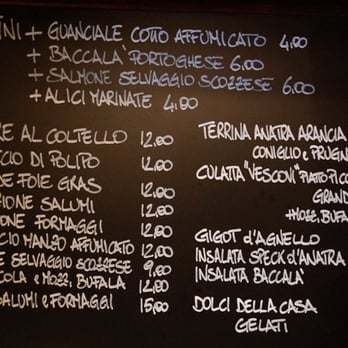 INI + GUANCIALE COTTO AFFUMICATO 4,00
+ BACCALA' PORTOGHESE 6,00
+ SALMONE SELVAGGIO SCOZZESE 6,00
+ ALICI MARINATE 4,00
RE AL COLTELLO 12,00
CIO DI POLIPO 12,00
DE FOIE GRAS 12,00
IONE SALUMI 12,00
ONE FORMAGGI 12,00
CIO MANZO AFFUMICATO 12,00
E SELVAGGIO SCOZZESE 9,00
COLA E MOZZ. BUFALA 12,00
SALUMI E FORMAGGI 15,00
TERRINA ANATRA ARANCIA
CONIGLIO E PRUGN
CULATTA "VESCONI" PIATTO PICC
GRAND
+MOZZ. BUFA
GIGOT D'AGNELLO
INSALATA SPECK D'ANATRA
INSALATA BACCALÀ
DOLCI DELLA CASA
GELATI